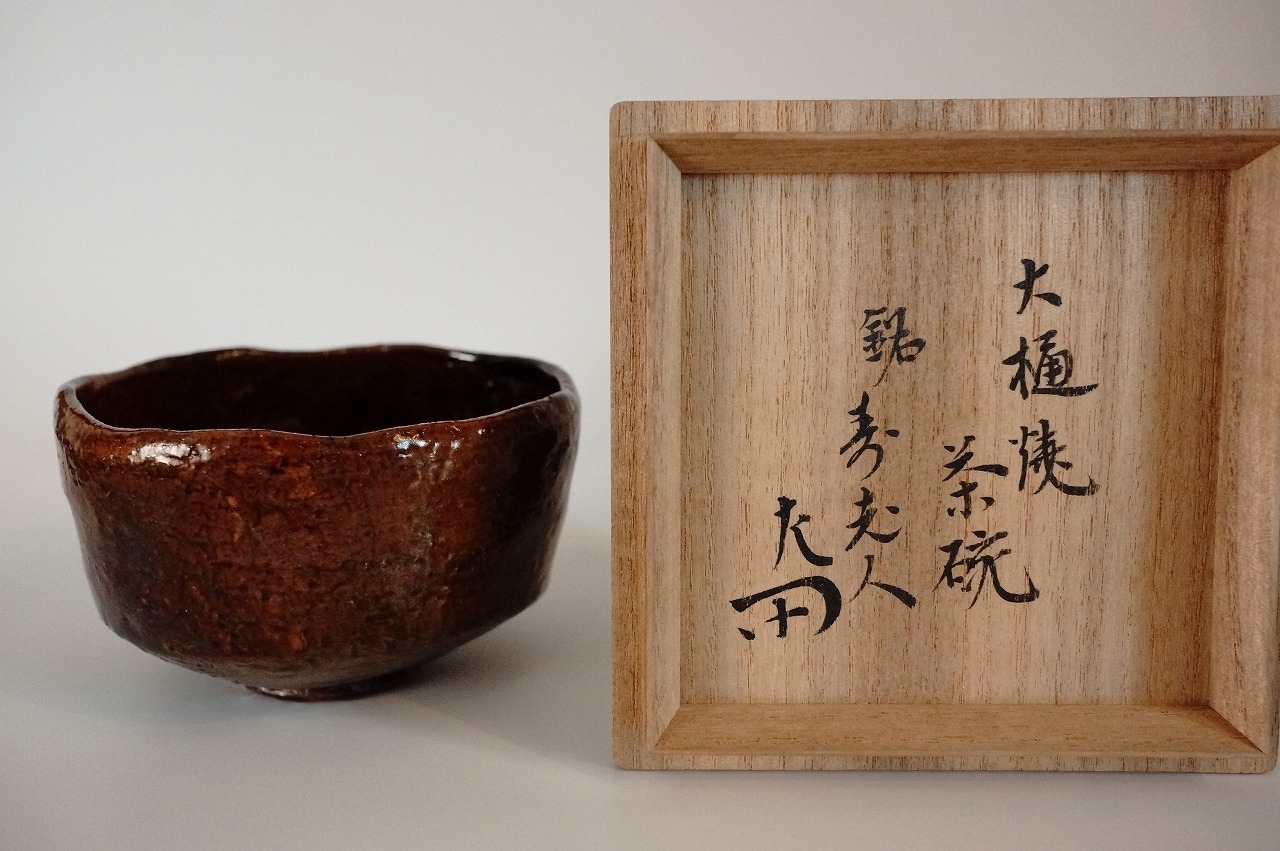 大樋焼
茶碗
銘
寿老人
左